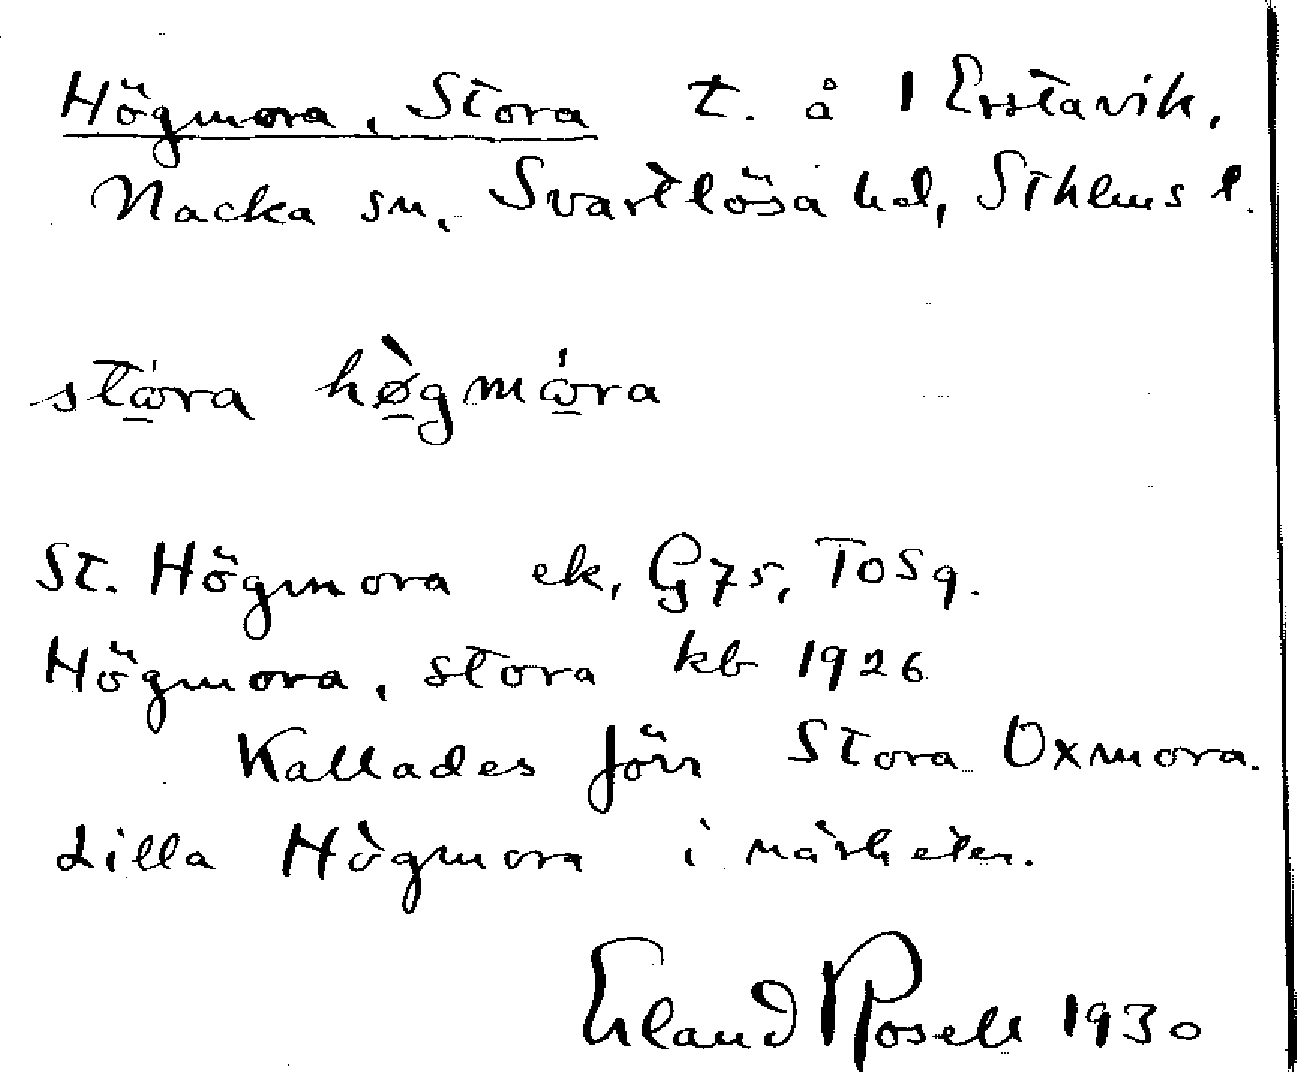 Högmora, Stora t. å 1 Erstavik,
Nacka sn, Svartlösa hd, Sthlms l.
stωra høgmωra
St. Högmora ek, G75, ToSq.
Högmora, stora kb 1926
Kallades förr Stora Oxmora.
Lilla Högmora i närheten.
Erland Rosell 1930